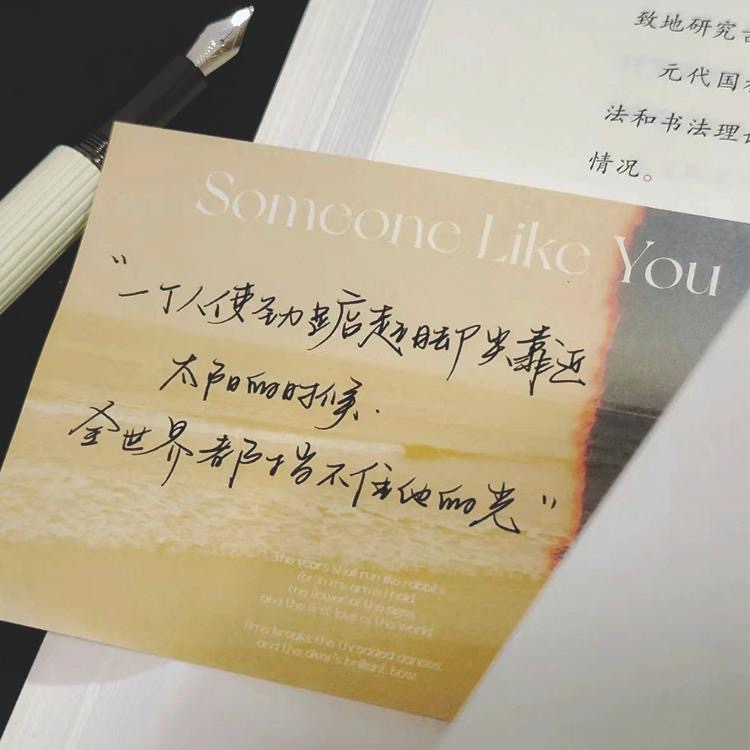 致地研究
元代国
法和书法理
情况。
Someone Like You
“一个人使劲踮起脚尖靠近
太阳的时候.
全世界都挡不住他的光”
The years shall run like rabbits,
for in my arms I hold
the flower of the ages,
and the first love of the world.
Time breaks the threaded dances,
and the diver's brilliant bow.